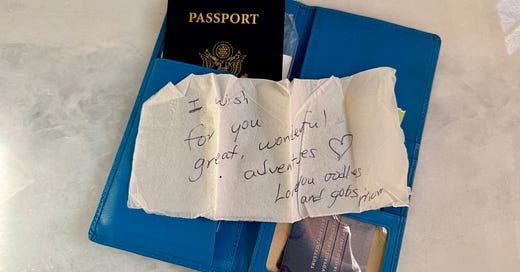 PASSPORT
I wish
for you
great, wonderful
adventures ♡
Love you oodles
and gobs
mom